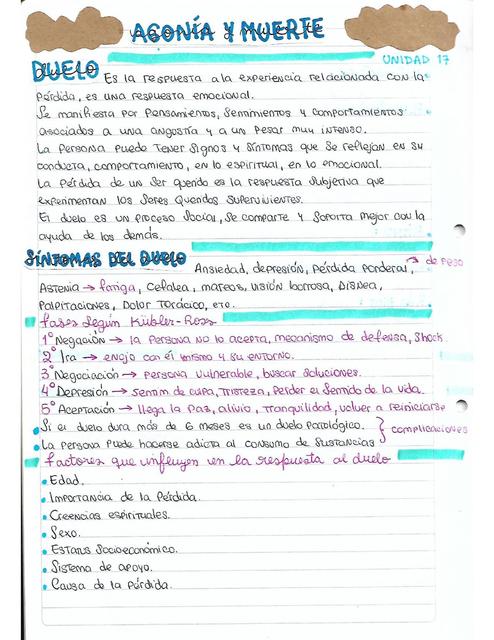 AGONÍA Y MUERTE
UNIDAD 17
DUELO Es la respuesta a la experiencia relacionada con la
pérdida, es una respuesta emocional.
Se manifiesta por pensamientos, sentimientos y comportamientos
asociados a una angustia y a un pesar muy intenso.
La persona puede tener signos y síntomas que se reflejan en su
conducta, comportamiento, en lo espiritual, en lo emocional.
La pérdida de un ser querido es la respuesta subjetiva que
experimentan los seres queridos supervivientes.
El duelo es un proceso social, se comparte y soporta mejor con la
ayuda de los demás.
SÍNTOMAS DEL DUELO Ansiedad, depresión, pérdida ponderal, → de peso
Astenia → fatiga, cefalea, mareos, visión borrosa, disnea,
palpitaciones, dolor torácico, etc.
fases según Kübler-Ross
1° Negación → la persona no lo acepta, mecanismo de defensa, shock.
2° Ira → enojo con él mismo y su entorno.
3° Negociación → persona vulnerable, buscar soluciones.
4° Depresión → sentim de culpa, tristeza, perder el sentido de la vida.
5° Aceptación → llega la paz, alivio, tranquilidad, volver a reiniciarse
• Si el duelo dura más de 6 meses es un duelo patológico.
• La persona puede hacerse adicta al consumo de sustancias } complicaciones
factores que influyen en la respuesta al duelo
• Edad.
• Importancia de la pérdida.
• Creencias espirituales.
• Sexo.
• Estatus socioeconómico.
• Sistema de apoyo.
• Causa de la pérdida.